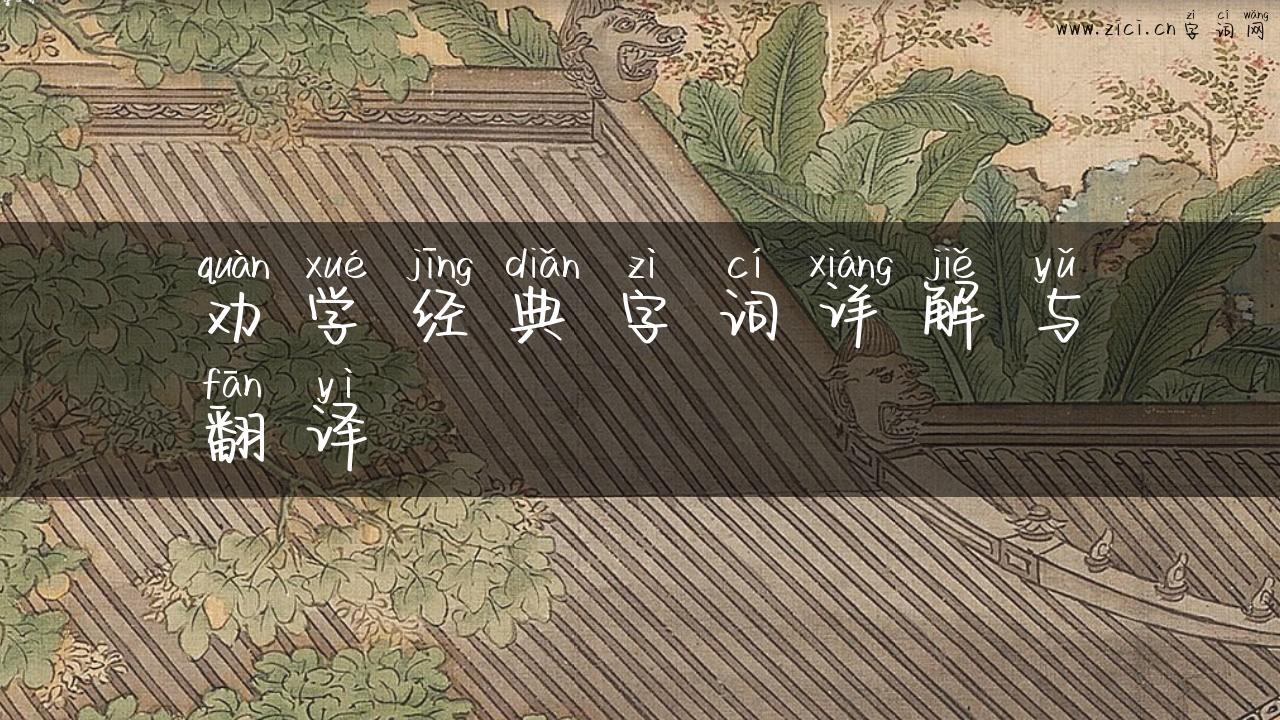 zì cí wǎng
www.zici.cn 字词网
quàn xué jīng diǎn zì cí xiáng jiě yǔ
劝学经典字词详解与
fān yì
翻译